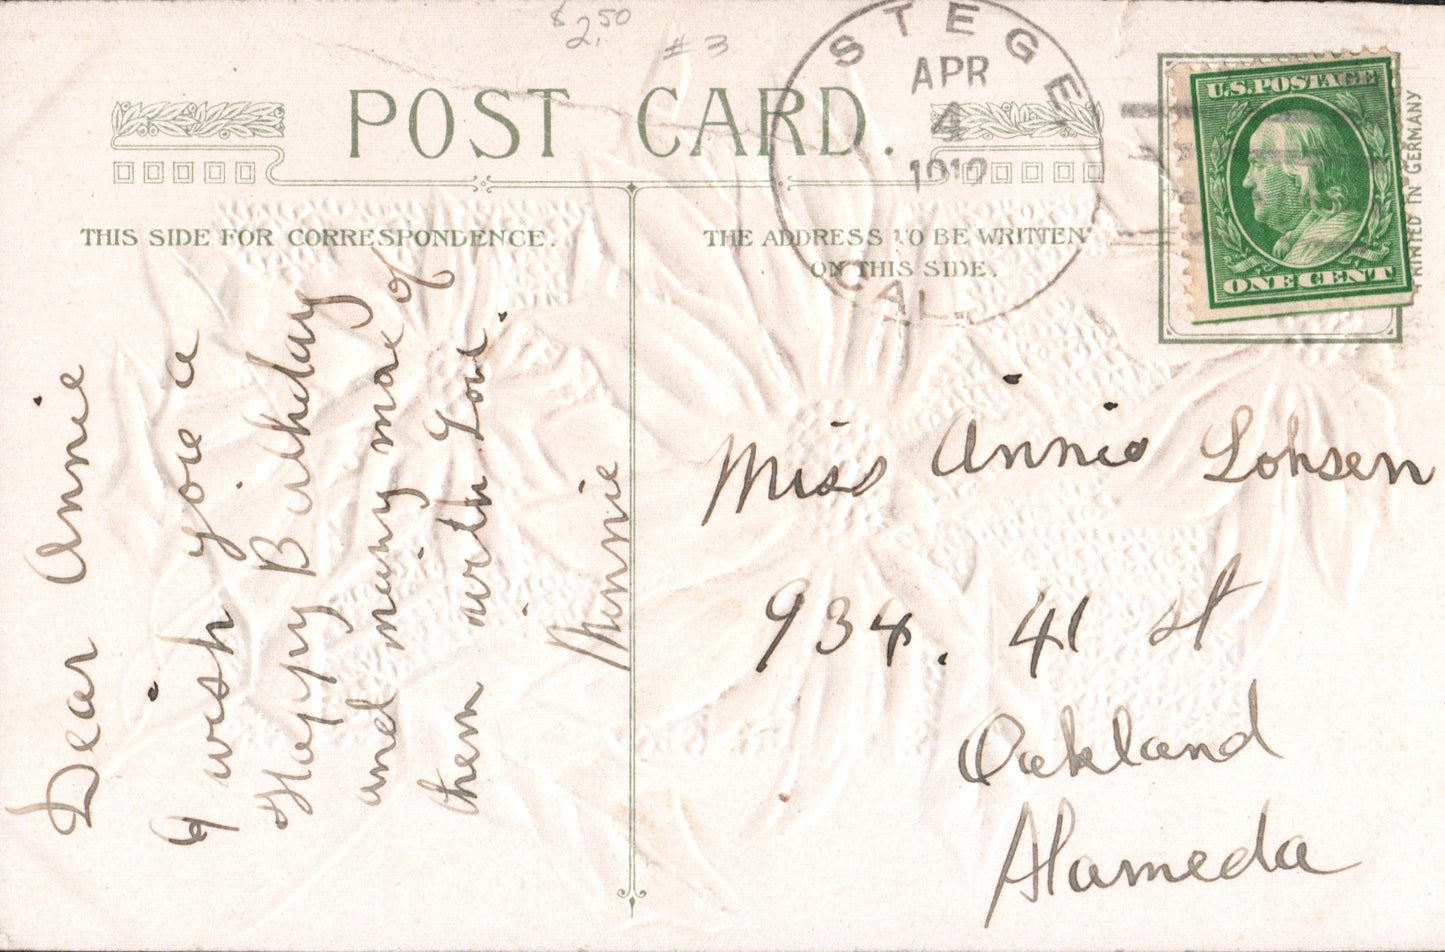 $2.50
#3
POST CARD.
THIS SIDE FOR CORRESPONDENCE.
THE ADDRESS TO BE WRITTEN
ON THIS SIDE.
STEGE
APR
4
CAL.
U.S.POSTAGE
ONE CENT
PRINTED IN GERMANY
Dear Annie
I wish you a
Happy Birthday
and many more of
them with Love.
Minnie
Miss Annie Lohsen
934. 41 st
Oakland
Alameda